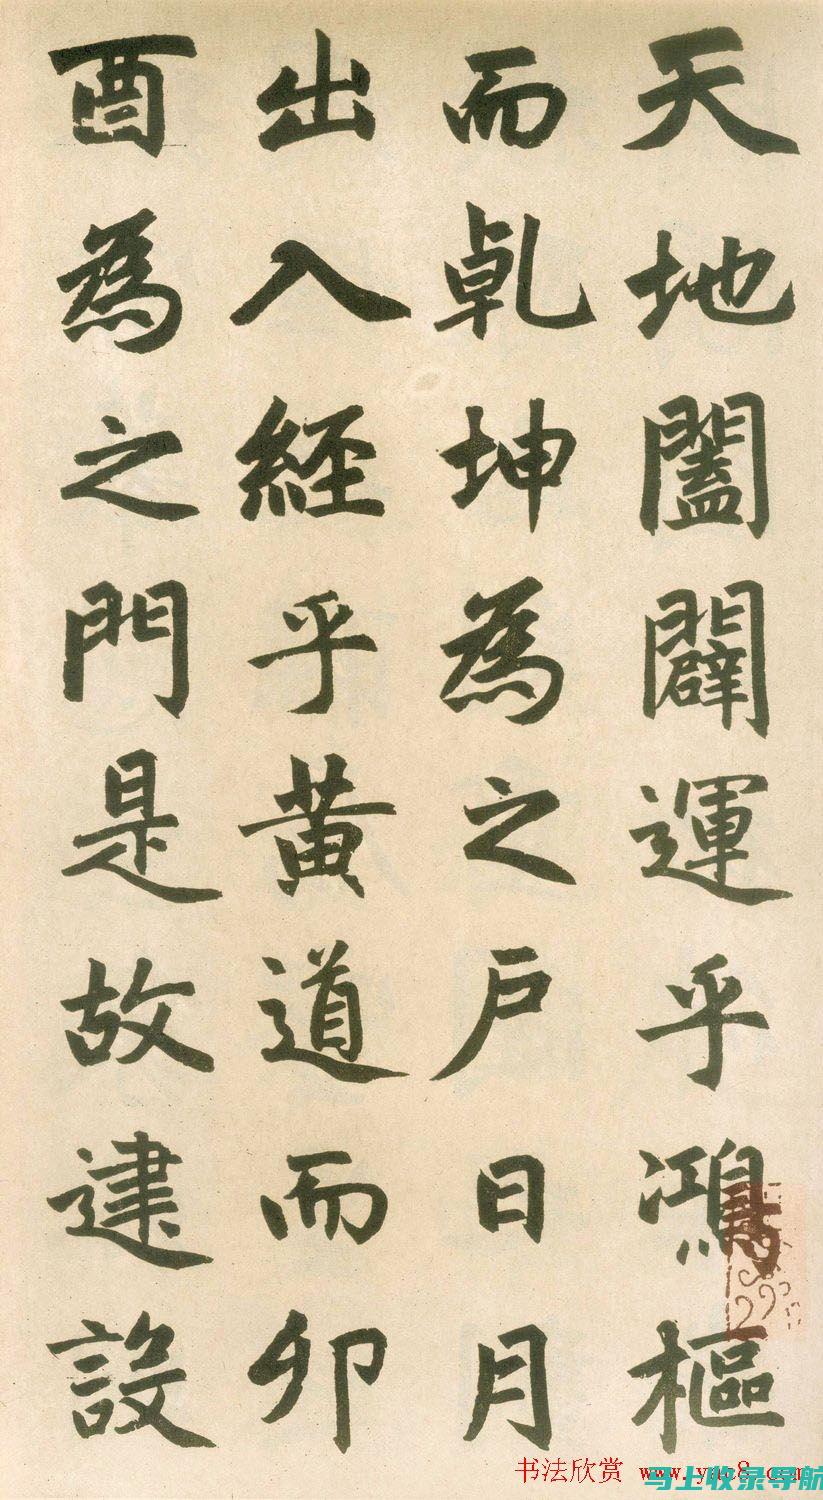 天地闔闢運乎鴻樞
而乹坤為之戶日月
出入經乎黃道而卯
酉為之門是故建設
书法欣赏
马上收录导航